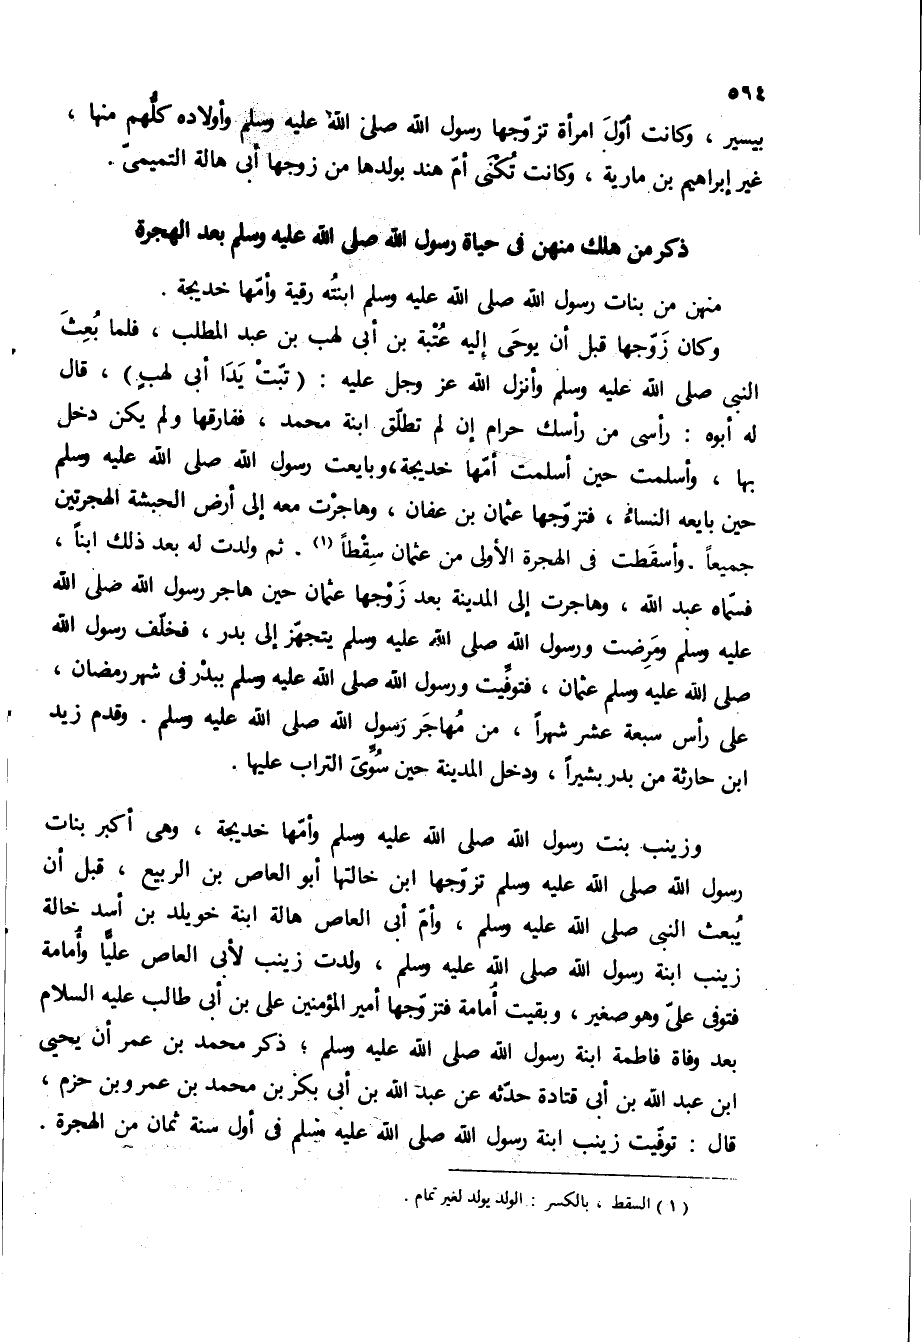 ٥٩٤
بيسير ، وكانت أوّلَ امرأة تزوّجها رسول الله صلى الله عليه وسلم وأولاده كلُّهم منها ،
غير إبراهيم بن مارية ، وكانت تُكْنَى أمّ هند بولدها من زوجها أبى هالة التميمىّ .
ذكر من هلك منهن فى حياة رسول الله صلى الله عليه وسلم بعد الهجرة
منهن من بنات رسول الله صلى الله عليه وسلم ابنتُه رقية وأمّها خديجة .
وكان زَوّجها قبل أن يوحَى إليه عُتْبة بن أبى لهب بن عبد المطلب ، فلما بُعِثَ
النبى صلى الله عليه وسلم وأنزل الله عز وجل عليه : ( تبّتْ يَدَا أبى لهب ) ، قال
له أبوه : رأسى من رأسك حرام إن لم تطلّق ابنة محمد ، ففارقها ولم يكن دخل
بها ، وأسلمت حين أسلمت أمّها خديجة،وبايعت رسول الله صلى الله عليه وسلم
حين بايعه النساءُ ، فتزوّجها عثمان بن عفان ، وهاجرْت معه إلى أرض الحبشة الهجرتين
جميعاً .وأسقَطت فى الهجرة الأولى من عثمان سِقْطاً (١) . ثم ولدت له بعد ذلك ابناً ،
فسمّاه عبد الله ، وهاجرت إلى المدينة بعد زَوْجها عثمان حين هاجر رسول الله صلى الله
عليه وسلم ومَرِضت ورسول الله صلى الله عليه وسلم يتجهّز إلى بدر ، فخلّف رسول الله
صلى الله عليه وسلم عثمان ، فتوفِّيت ورسول الله صلى الله عليه وسلم ببدْر فى شهر رمضان ،
على رأس سبعة عشر شهراً ، من مُهاجَر رَسول الله صلى الله عليه وسلم . وقدم زيد
ابن حارثة من بدر بشيراً ، ودخل المدينة حين سُوِّىَ التراب عليها .
وزينب بنت رسول الله صلى الله عليه وسلم وأمّها خديجة ، وهى أكبر بنات
رسول الله صلى الله عليه وسلم تزوّجها ابن خالتها أبو العاص بن الربيع ، قبل أن
يُبعث النبى صلى الله عليه وسلم ، وأمّ أبى العاص هالة ابنة خويلد بن أسد خالة
زينب ابنة رسول الله صلى الله عليه وسلم ، ولدت زينب لأبى العاص عليًّا وأُمامة
فتوفى علىّ وهو صغير ، وبقيت أُمامة فتزوّجها أمير المؤمنين على بن أبى طالب عليه السلام
بعد وفاة فاطمة ابنة رسول الله صلى الله عليه وسلم ؛ ذكر محمد بن عمر أن يحيى
ابن عبد الله بن أبى قتادة حدّثه عن عبد الله بن أبى بكر بن محمد بن عمرو بن حزم ،
قال : توفّيت زينب ابنة رسول الله صلى الله عليه وسلم فى أول سنة ثمان من الهجرة .
(١) السقط ، بالكسر : الولد يولد لغير تمام .